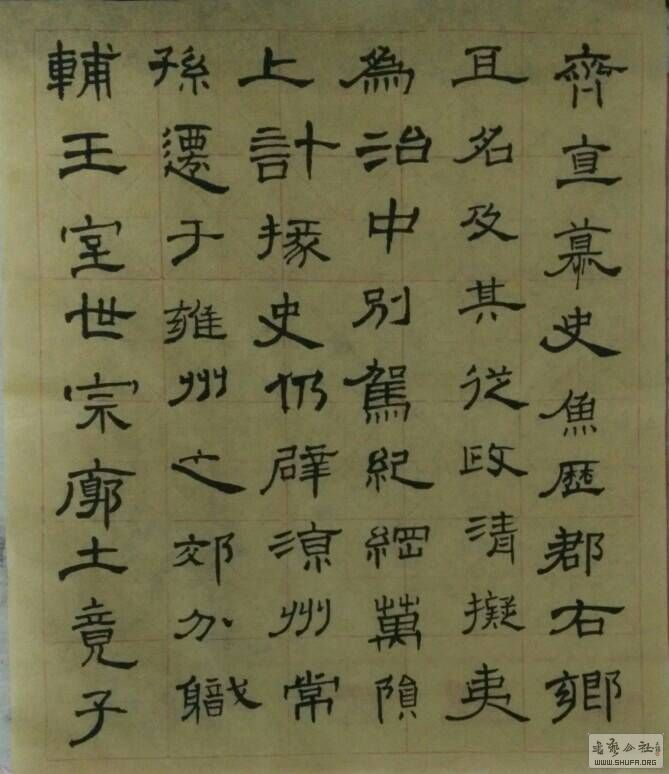 齊直慕史魚歷郡右鄉
且名及其從政清擬夷
為治中別駕紀綱萬隕
上計掾史仍辟涼州常
孫遷于雍州之郊分職
輔王室世宗廓土竟子
书艺公社
WWW.SHUFA.ORG